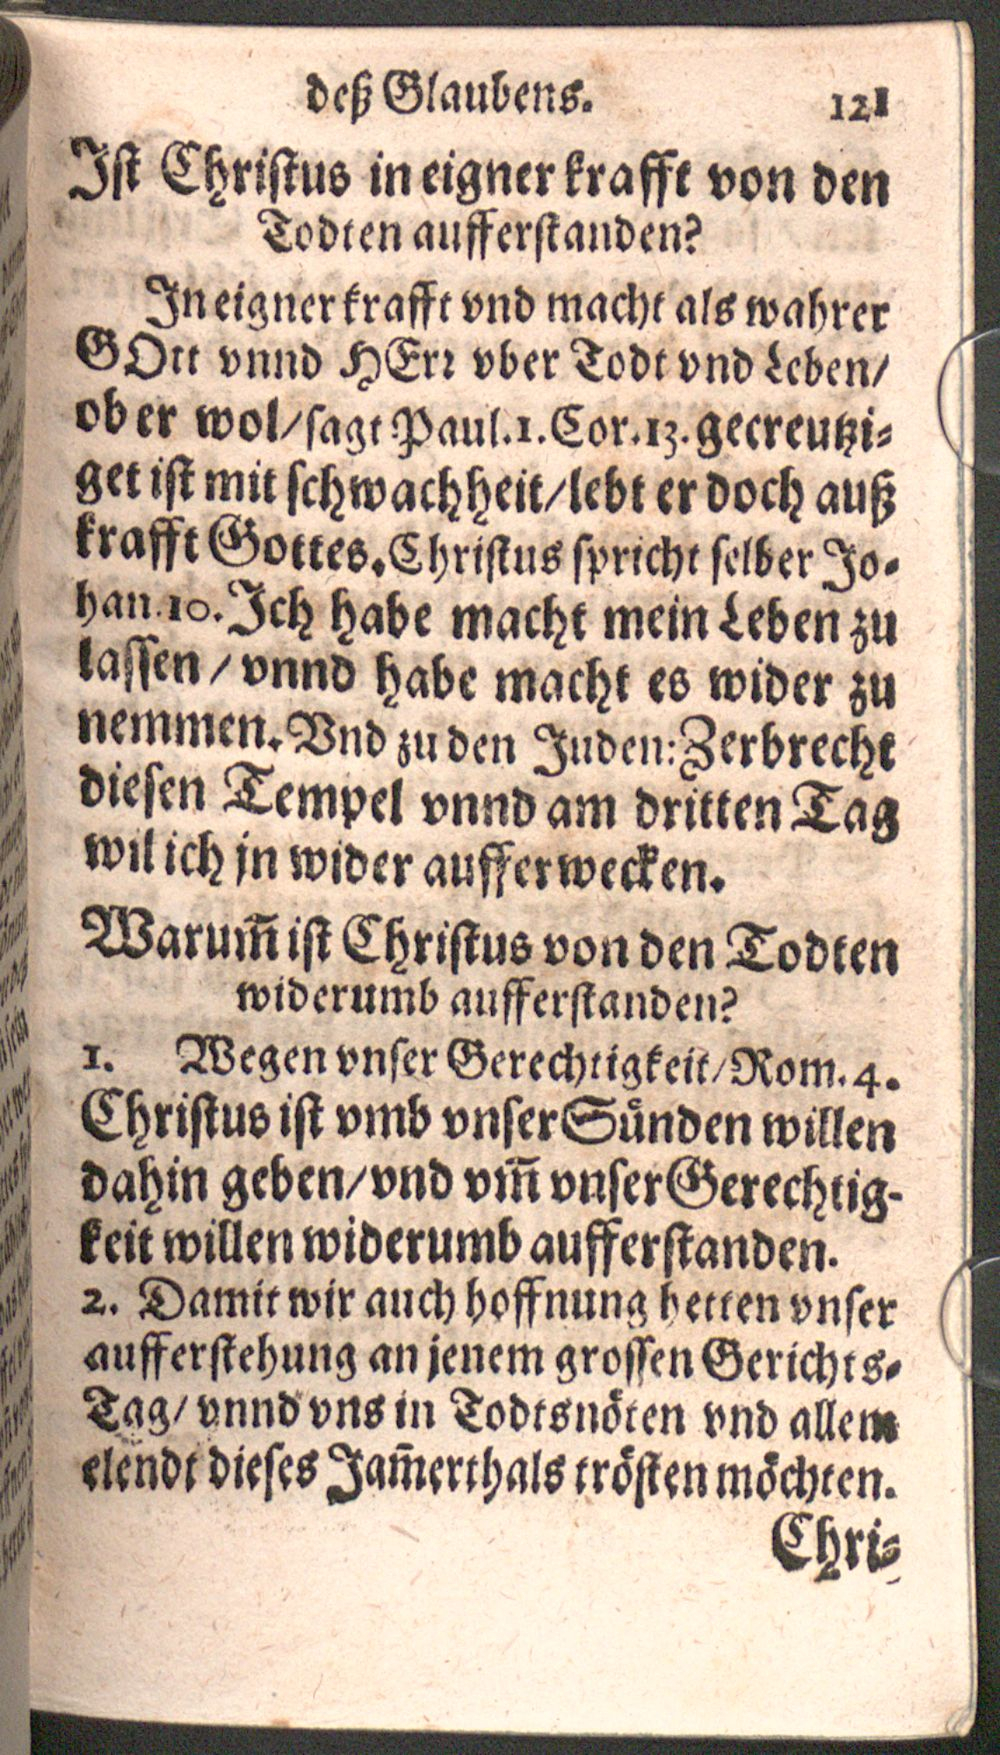 deß Glaubens. 121
Ist Christus in eigner krafft von den
Todten aufferstanden?
In eigner krafft vnd macht als wahrer
GOtt vnnd HErr vber Todt vnd Leben/
ob er wol/sagt Paul.1.Cor.13.gecreutzi-
get ist mit schwachheit/lebt er doch auß
krafft Gottes. Christus spricht selber Jo-
han.10. Ich habe macht mein Leben zu
lassen/vnnd habe macht es wider zu
nemmen. Vnd zu den Juden: Zerbrecht
diesen Tempel vnnd am dritten Tag
wil ich jn wider aufferwecken.
Warum̃ ist Christus von den Todten
widerumb aufferstanden?
1. Wegen vnser Gerechtigkeit/Rom.4.
Christus ist vmb vnser Sünden willen
dahin geben/vnd vm̃ vnser Gerechtig-
keit willen widerumb aufferstanden.
2. Damit wir auch hoffnung hetten vnser
aufferstehung an jenem grossen Gerichts-
Tag/vnnd vns in Todtsnöten vnd allem
elendt dieses Jam̃erthals trösten möchten.
Chri-